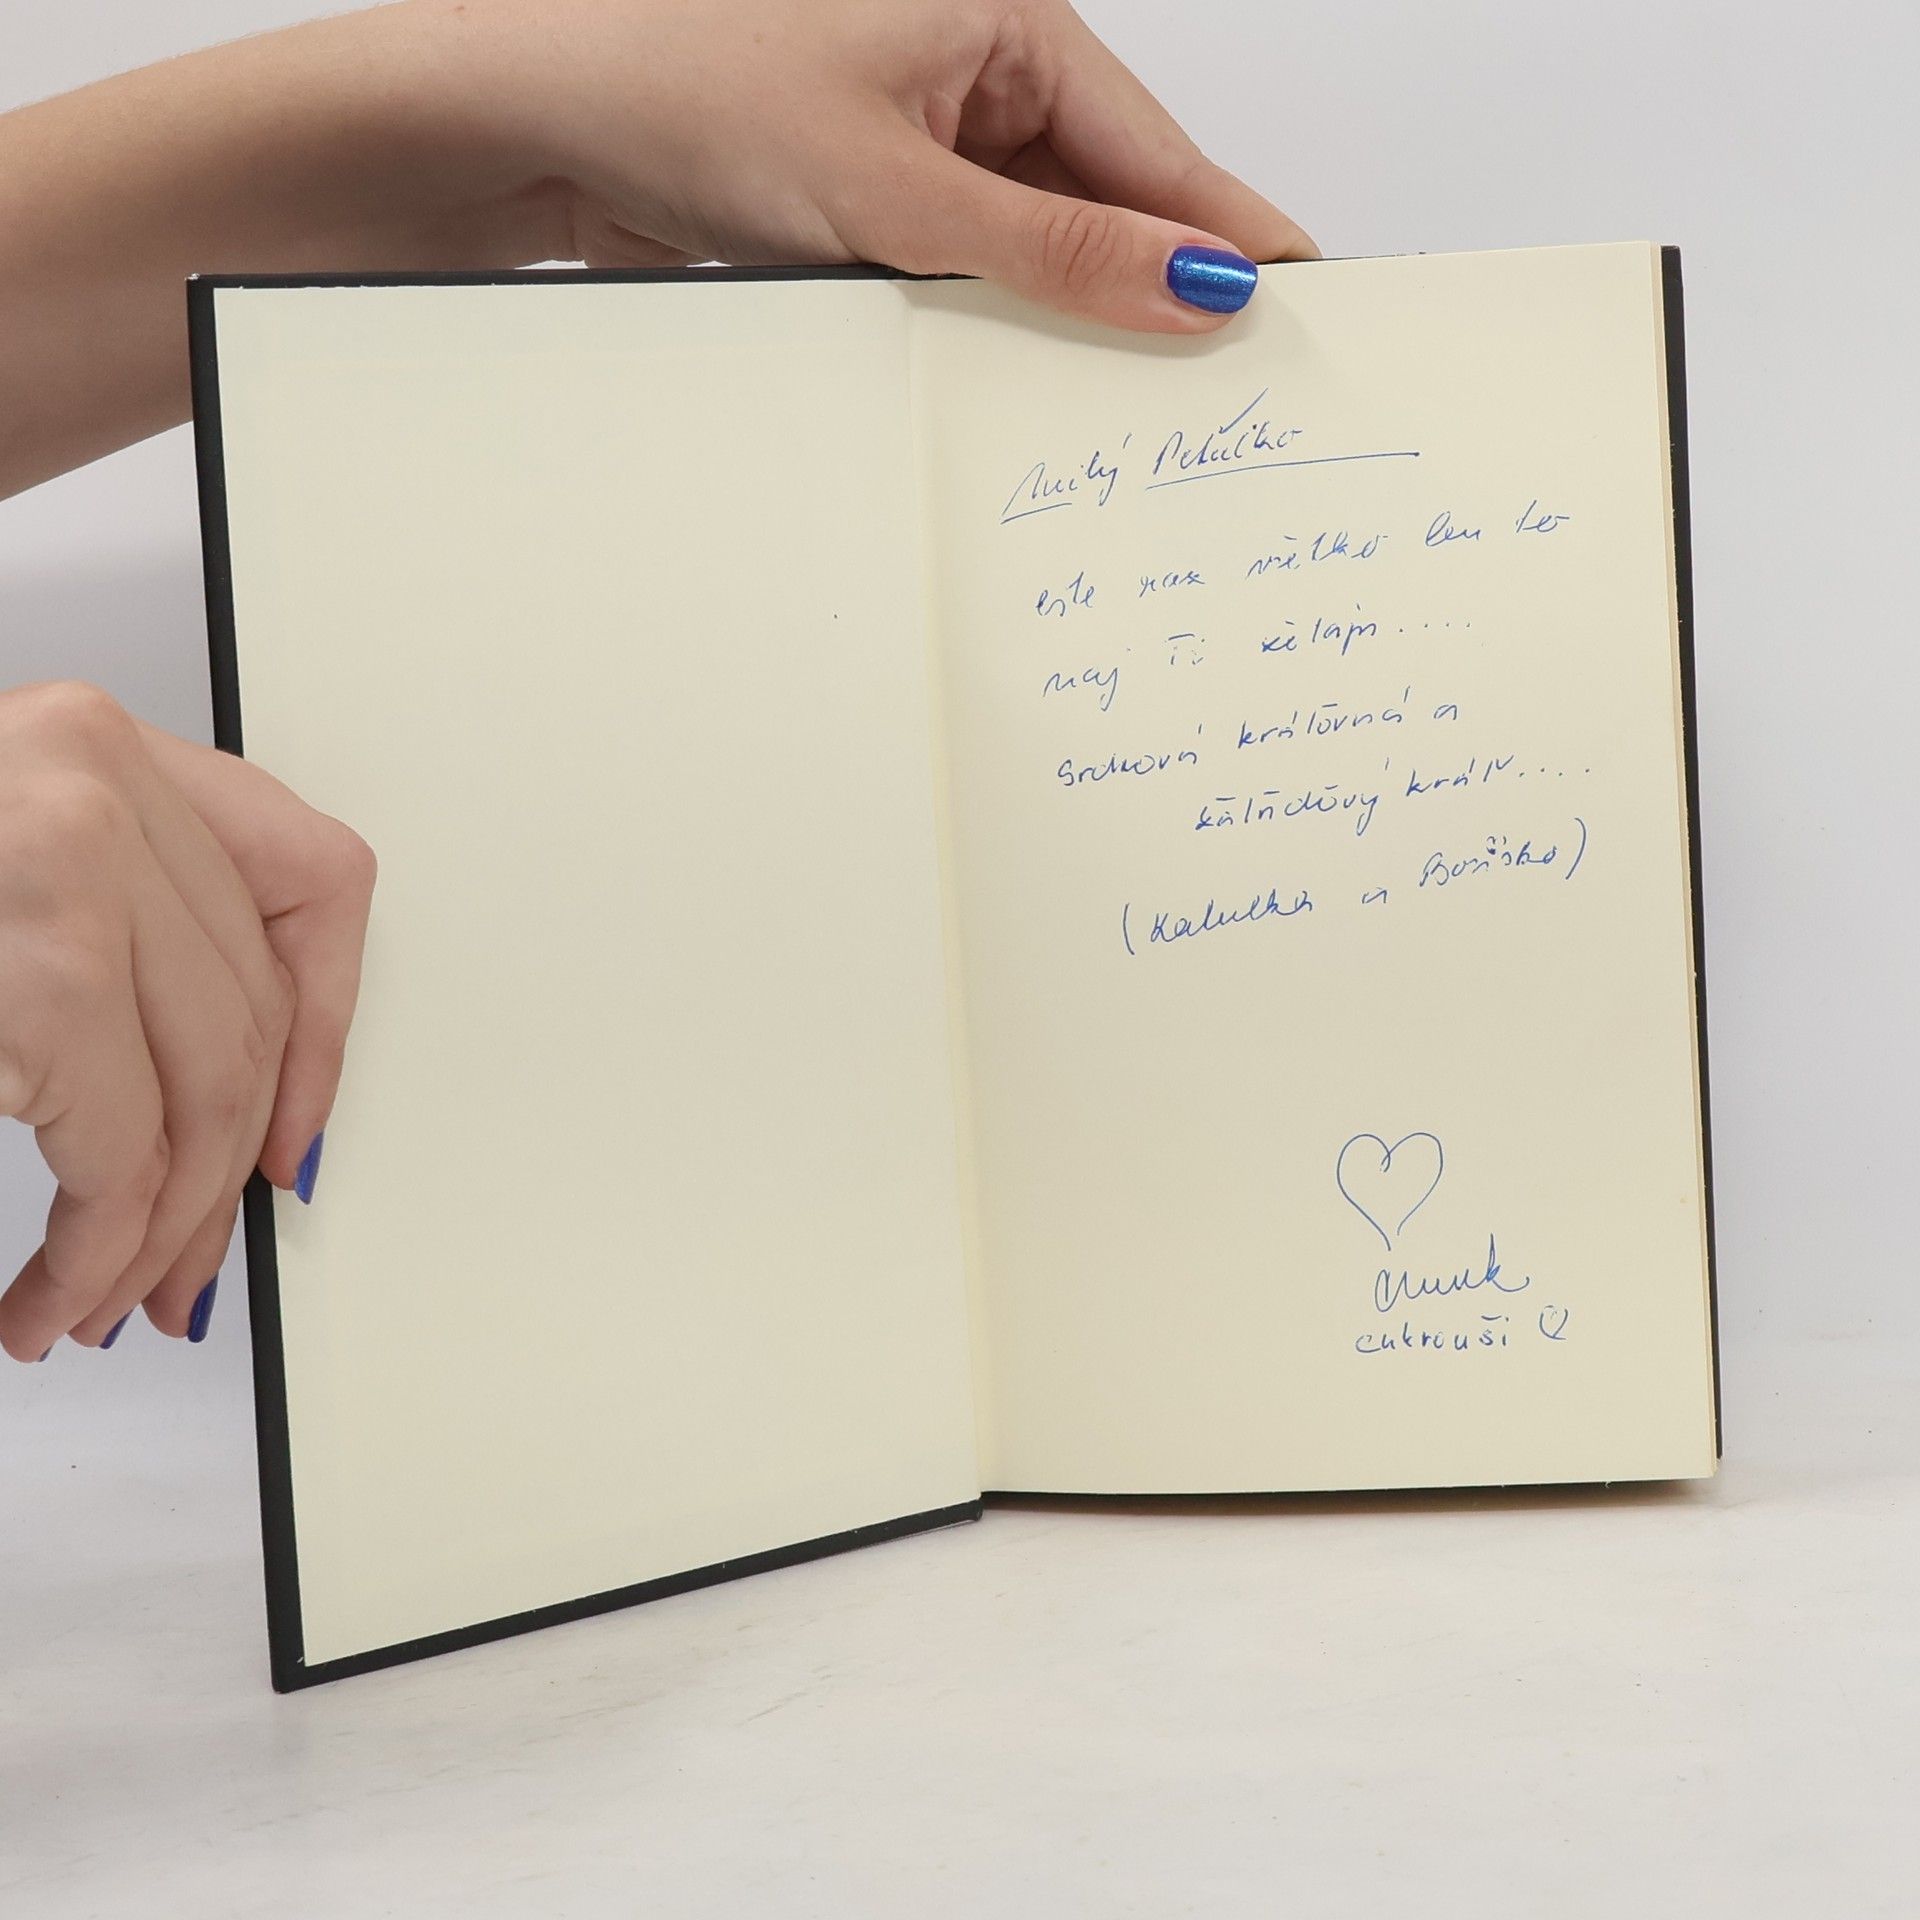 Milý Peťučko
ešte raz všetko len to
naj Ti želajú....
Srdcová kráľovná a
žaluďový kráľ....
(Katulka a Boriško)
cukrouši